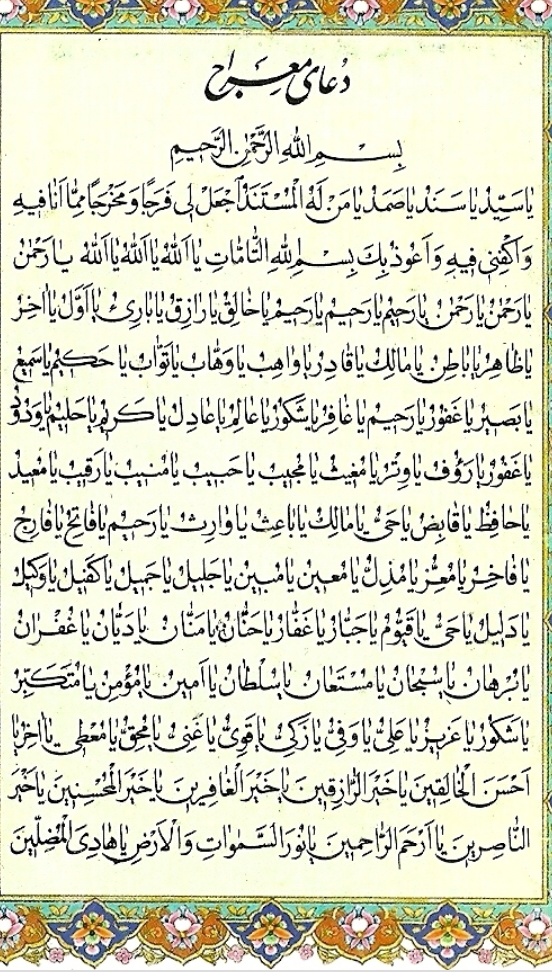 دُعای مِعراج
بِسْمِ اللهِ الرَّحْمٰنِ الرَّحِیمِ
یٰا سَیِّدُ یٰا سَنَدُ یٰا صَمَدُ یٰا مَنْ لَهُ الْمُسْتَنَدُ اِجْعَلْ لِی فَرَجًا وَ مَخْرَجًا مِمّٰا اَنَا فِیهِ
وَ اکْفِنِی فِیهِ وَ اَعُوذُ بِكَ بِسْمِ اللهِ التّٰامّٰاتِ یٰا اَللهُ یٰا اَللهُ یٰا اَللهُ یٰا رَحْمٰنُ
یٰا رَحْمٰنُ یٰا رَحْمٰنُ یٰا رَحِیمُ یٰا رَحِیمُ یٰا رَحِیمُ یٰا خٰالِقُ یٰا رٰازِقُ یٰا بٰارِئُ یٰا اَوَّلُ یٰا اٰخِرُ
یٰا ظٰاهِرُ یٰا بٰاطِنُ یٰا مٰالِكُ یٰا قٰادِرُ یٰا وٰاهِبُ یٰا وَهّٰابُ یٰا تَوّٰابُ یٰا حَکِیمُ یٰا سَمِیعُ
یٰا بَصِیرُ یٰا غَفُورُ یٰا رَحِیمُ یٰا غٰافِرُ یٰا شَکُورُ یٰا عٰالِمُ یٰا عٰادِلُ یٰا کَرِیمُ یٰا حَلِیمُ یٰا وَدُودُ
یٰا غَفُورُ یٰا رَؤُفُ یٰا وِتْرُ یٰا مُغِیثُ یٰا مُجِیبُ یٰا حَبِیبُ یٰا مُنِیبُ یٰا رَقِیبُ یٰا مُعِیدُ
یٰا حٰافِظُ یٰا قٰابِضُ یٰا حَیُّ یٰا مٰالِكُ یٰا بٰاعِثُ یٰا وٰارِثُ یٰا رَحِیمُ یٰا فٰاتِحُ یٰا فٰارِجُ
یٰا فٰاخِرُ یٰا مُعِزُّ یٰا مُذِلُّ یٰا مُعِینُ یٰا مُبِینُ یٰا جَلِیلُ یٰا جَمِیلُ یٰا کَفِیلُ یٰا وَکِیلُ
یٰا دَلِیلُ یٰا حَیُّ یٰا قَیُّومُ یٰا جَبّٰارُ یٰا غَفّٰارُ یٰا حَنّٰانُ یٰا مَنّٰانُ یٰا دَیّٰانُ یٰا غُفْرٰانُ
یٰا بُرْهٰانُ یٰا سُبْحٰانُ یٰا مُسْتَعٰانُ یٰا سُلْطٰانُ یٰا اَمِینُ یٰا مُؤْمِنُ یٰا مُتَکَبِّرُ
یٰا شَکُورُ یٰا عَزِیزُ یٰا عَلِیُّ یٰا وَفِیُّ یٰا زَکِیُّ یٰا قَوِیُّ یٰا غَنِیُّ یٰا مُحِقُّ یٰا مُعْطِی یٰا اٰخِرُ یٰا
اَحْسَنَ الْخٰالِقِینَ یٰا خَیْرَ الرّٰازِقِینَ یٰا خَیْرَ الْغٰافِرِینَ یٰا خَیْرَ الْمُحْسِنِینَ یٰا خَیْرَ
النّٰاصِرِینَ یٰا اَرْحَمَ الرّٰاحِمِینَ یٰا نُورَ السَّمٰوٰاتِ وَ الْاَرْضِ یٰا هٰادِیَ الْمُضِلِّینَ